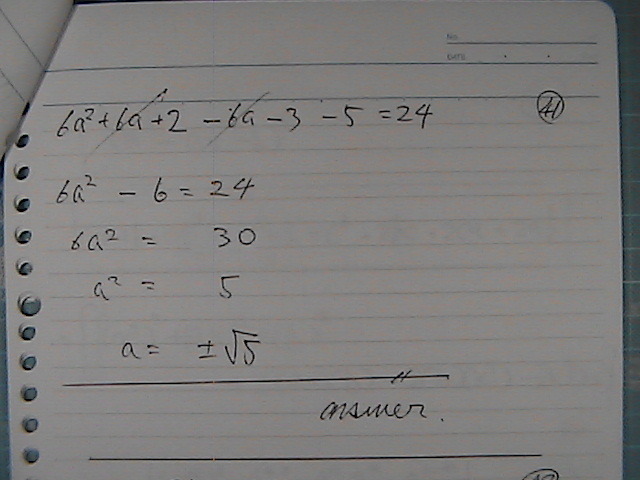 No.
DATE
6a²+6a+2 -6a-3 -5 =24 41
6a² - 6 = 24
6a² = 30
a² = 5
a = ±√5
answer.